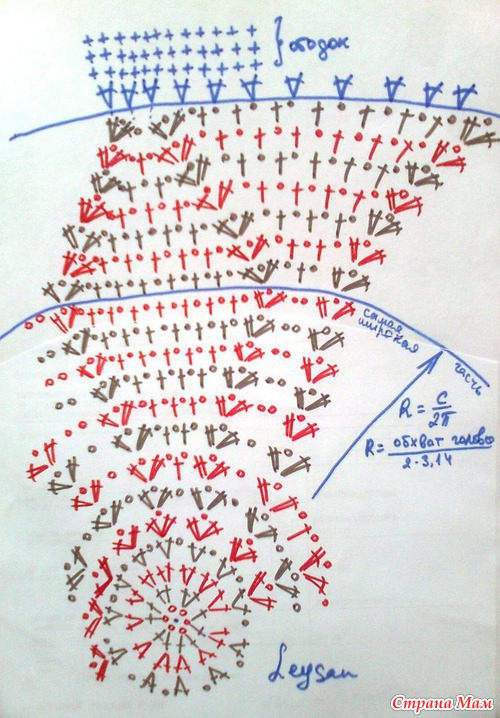 ободок
самая
широкая
часть
R = C
2π
R = обхват головы
2 · 3,14
Leysan
Страна Мам